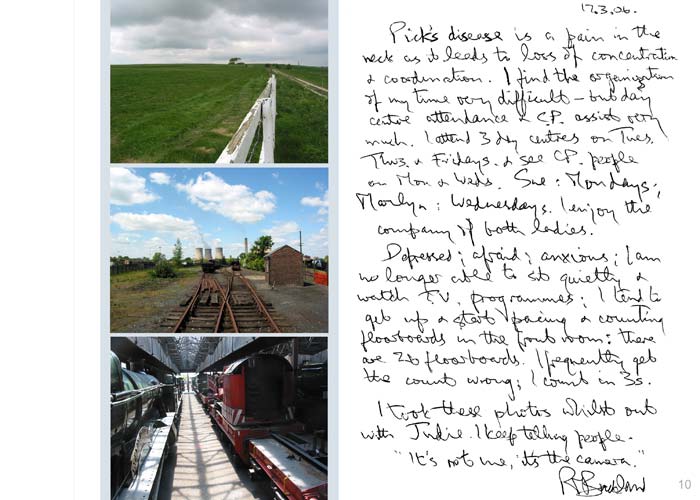 17.3.06.
Pick's disease is a pain in the
neck as it leads to loss of concentration
& coordination. I find the organization
of my time very difficult – but day
centre attendance & C.P. assist very
much. I attend 3 day centres on Tues.
Thurs. & Fridays. & see C.P. people
on Mon & Weds. Sue: Mondays;
Marlyn: Wednesdays. I enjoy the
company of both ladies.
Depressed; afraid; anxious; I am
no longer able to sit quietly &
watch T.V. programmes; I tend to
get up & start pacing & counting
floorboards in the front room: there
are 28 floorboards. I frequently get
the count wrong; I count in 3s.
I took these photos whilst out
with Jackie. I keep telling people.
"It's not me, it's the camera."
10